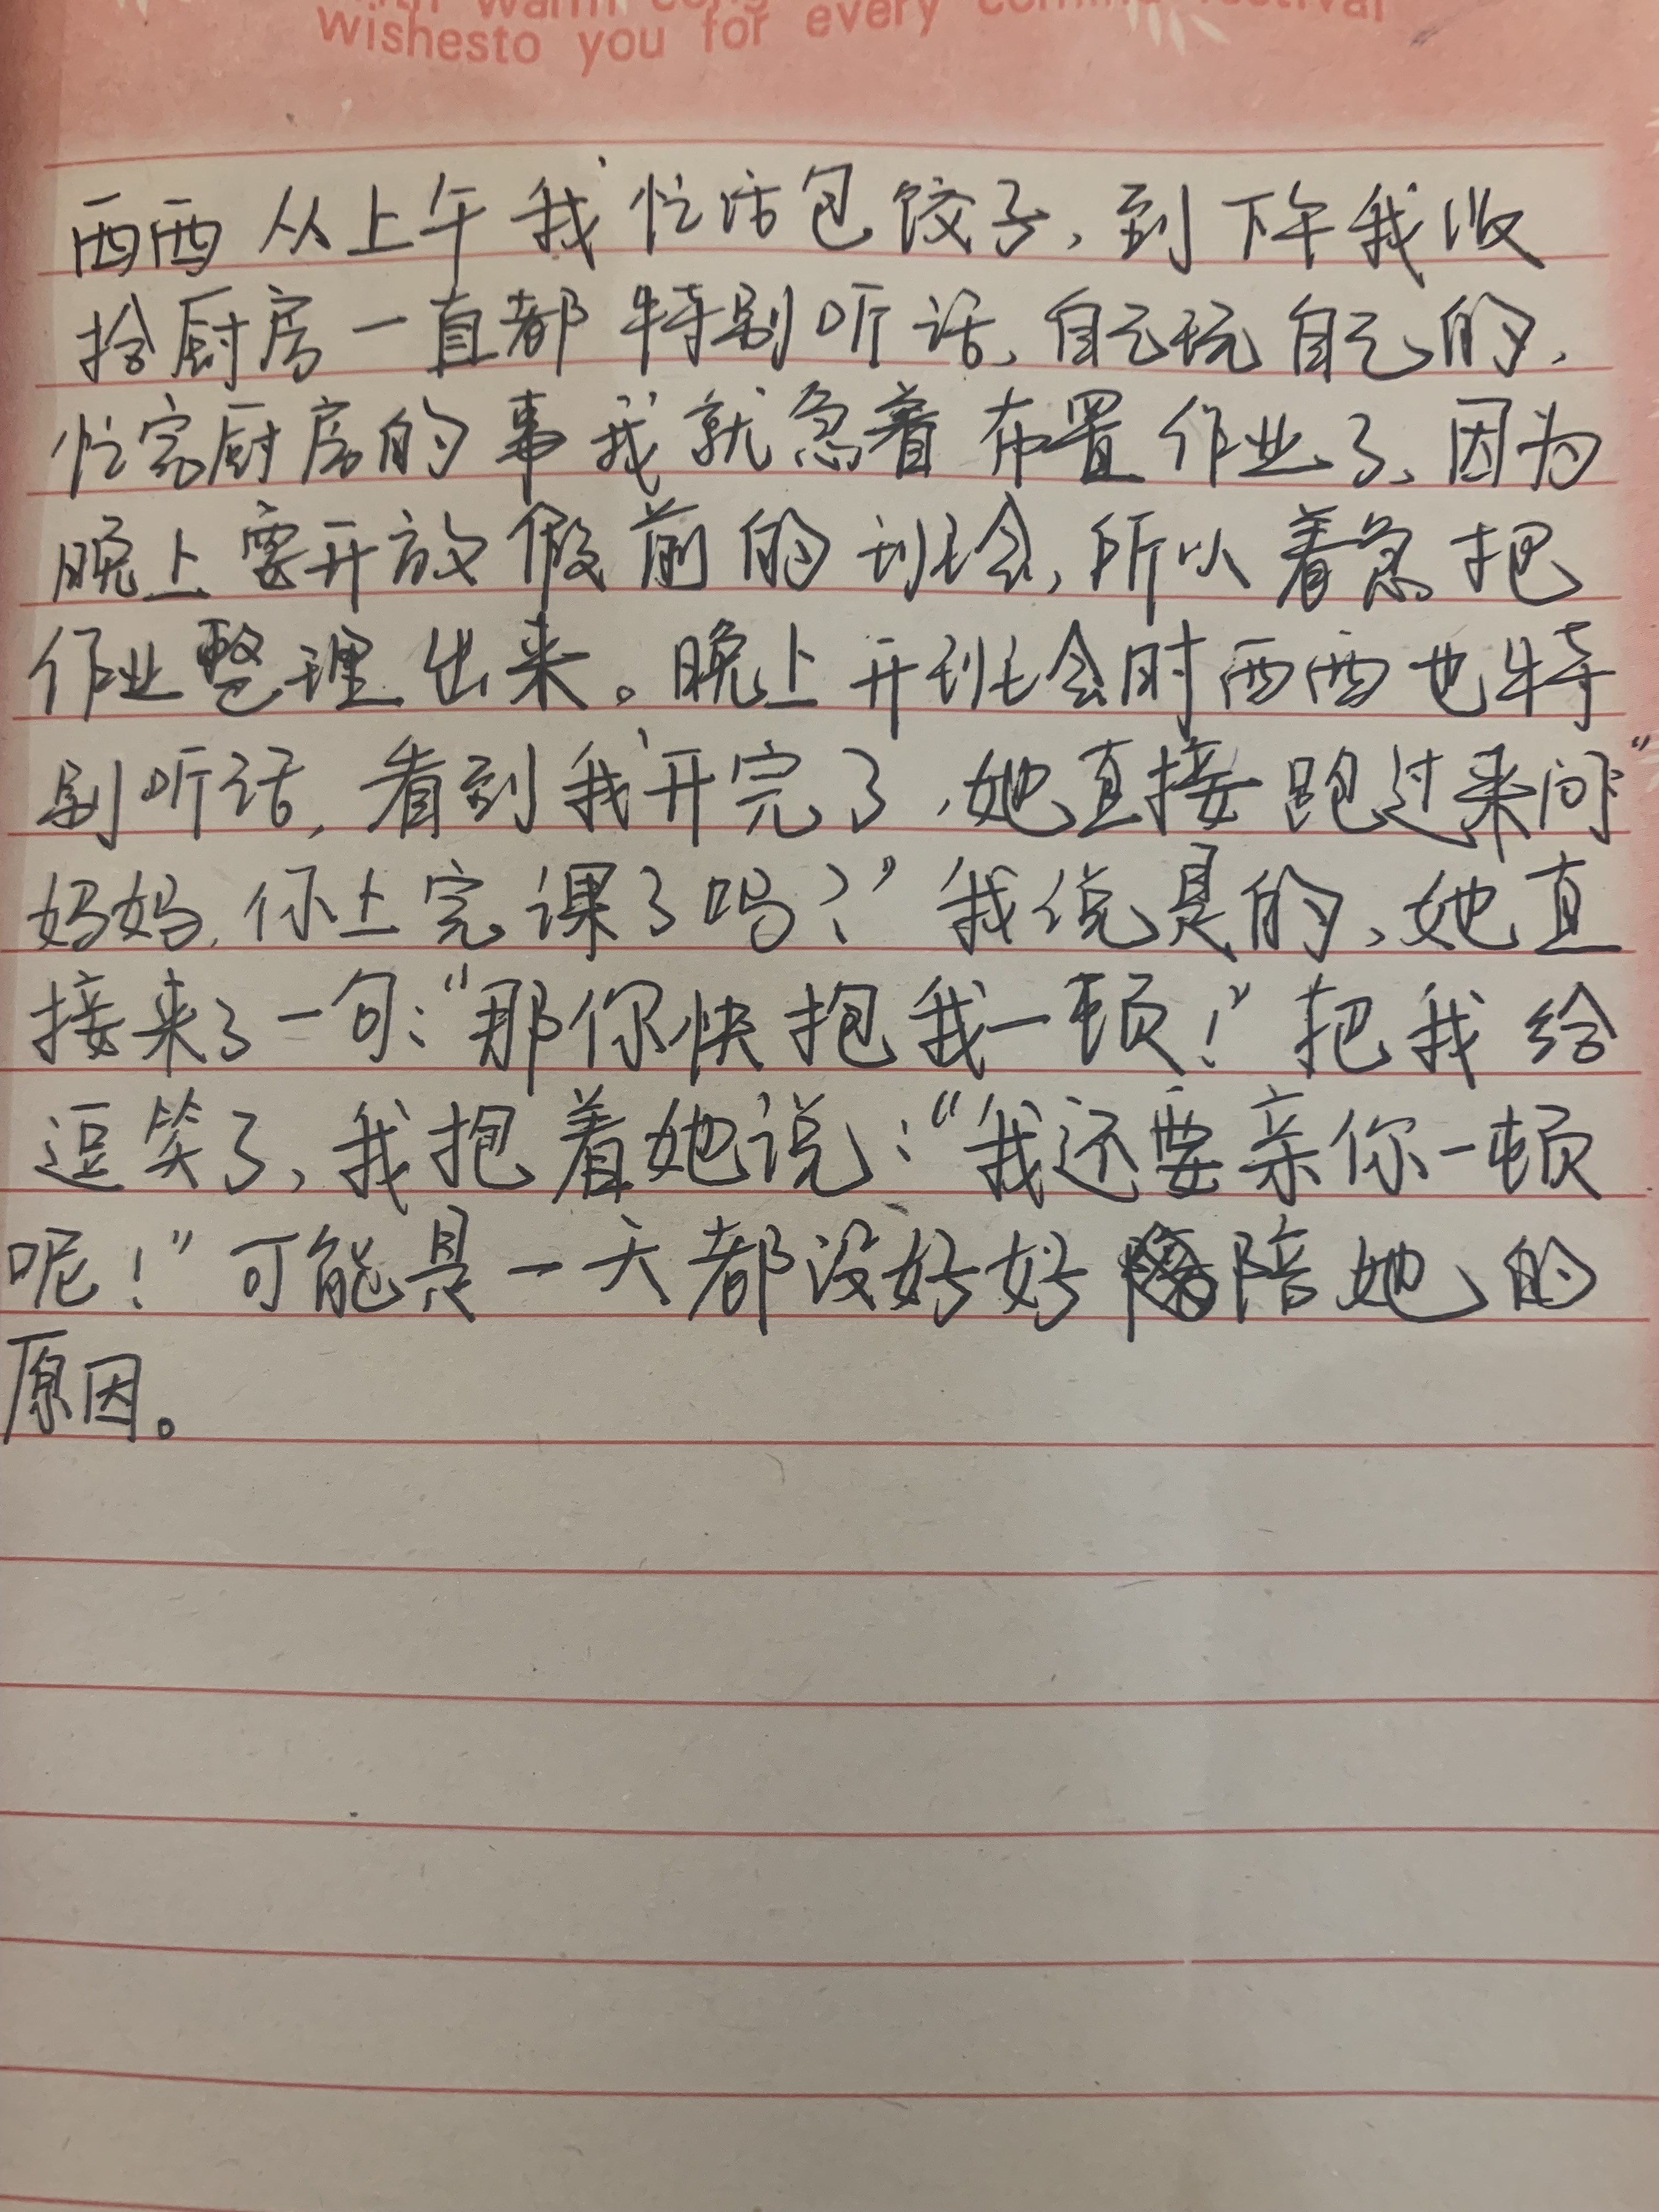 wishesto you for every
西西从上午我忙活包饺子,到下午我收
拾厨房一直都特别听话,自己玩自己的,
忙完厨房的事我就急着布置作业了,因为
晚上要开放假前的班会,所以着急把
作业整理出来。晚上开班会时西西也特
别听话,看到我开完了,她直接跑过来问“
妈妈,你上完课了吗?”我说是的,她直
接来了一句:“那你快抱我一顿!”把我给
逗笑了,我抱着她说:“我还要亲你一顿
呢!”可能是一天都没好好陪她的
原因。